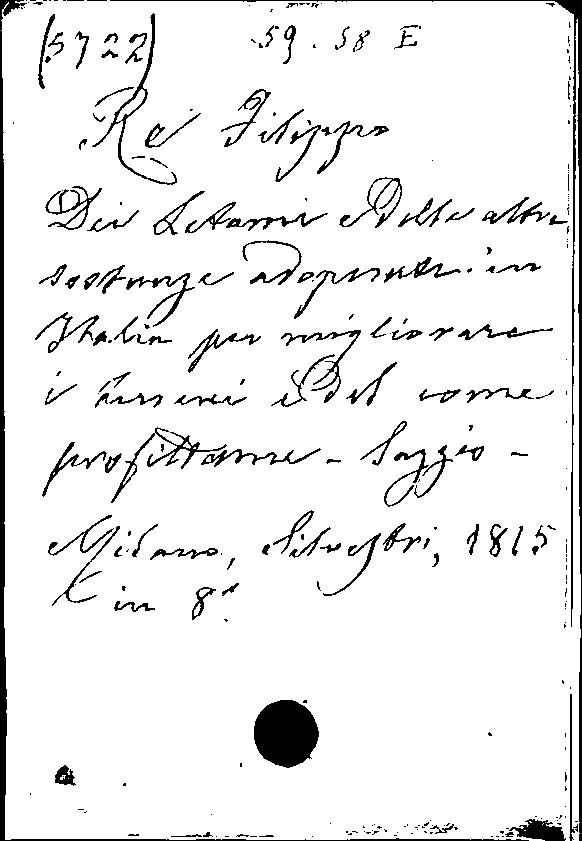 (5722) 59.58 E
Re Filippo
Dei Letami e delle altre
sostanze adoperate in
Italia per migliorare
i terreni e del come
profittarne - Saggio -
Milano, Silvestri, 1815
in 8º